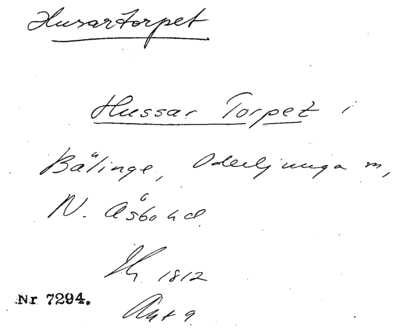 Husartorpet
Hussar Torpet i
Bälinge, Oderljunga sn,
N. Åsbo hd.
1812
Nr 7294.